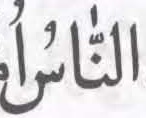 النَّاسُ أُ